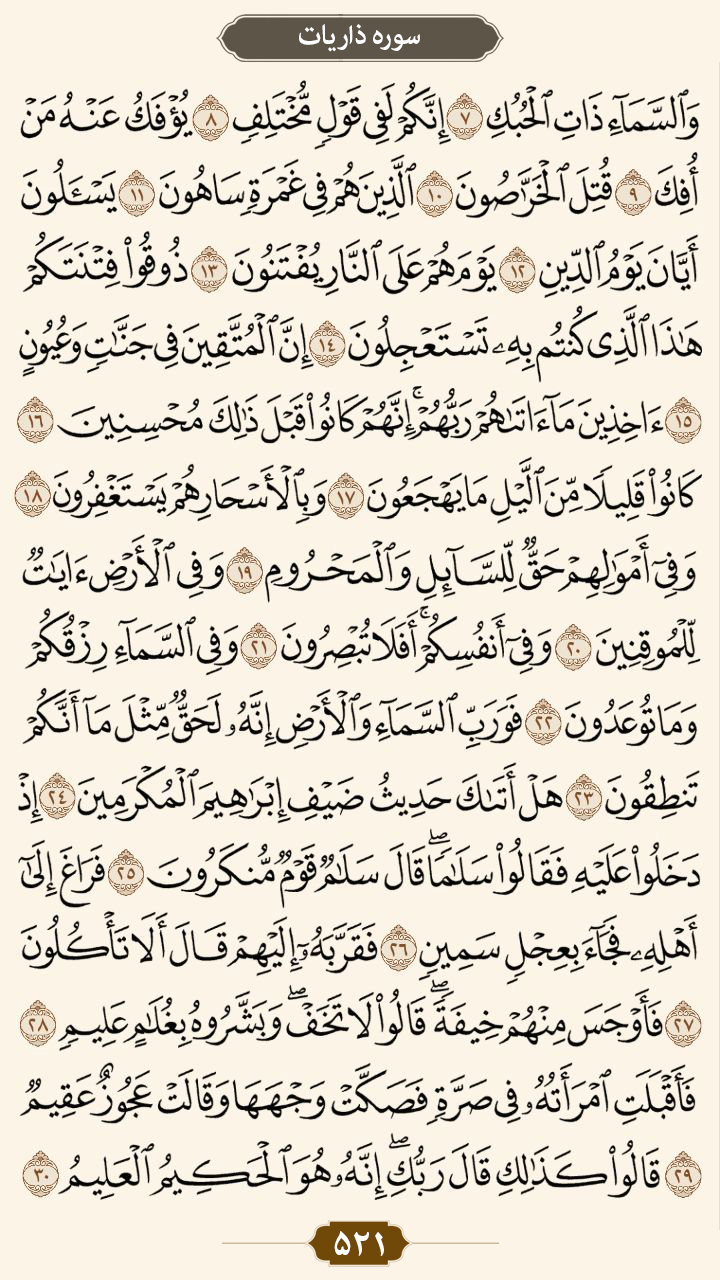 سوره ذاریات
وَٱلسَّمَآءِ ذَاتِ ٱلْحُبُكِ ٧ إِنَّكُمْ لَفِى قَوْلٍ مُّخْتَلِفٍ ٨ يُؤْفَكُ عَنْهُ مَنْ
أُفِكَ ٩ قُتِلَ ٱلْخَرَّٰصُونَ ١٠ ٱلَّذِينَ هُمْ فِى غَمْرَةٍ سَاهُونَ ١١ يَسْـَٔلُونَ
أَيَّانَ يَوْمُ ٱلدِّينِ ١٢ يَوْمَ هُمْ عَلَى ٱلنَّارِ يُفْتَنُونَ ١٣ ذُوقُوا۟ فِتْنَتَكُمْ
هَٰذَا ٱلَّذِى كُنتُم بِهِۦ تَسْتَعْجِلُونَ ١٤ إِنَّ ٱلْمُتَّقِينَ فِى جَنَّٰتٍ وَعُيُونٍ
١٥ ءَاخِذِينَ مَآ ءَاتَىٰهُمْ رَبُّهُمْ ۚ إِنَّهُمْ كَانُوا۟ قَبْلَ ذَٰلِكَ مُحْسِنِينَ ١٦
كَانُوا۟ قَلِيلًا مِّنَ ٱلَّيْلِ مَا يَهْجَعُونَ ١٧ وَبِٱلْأَسْحَارِ هُمْ يَسْتَغْفِرُونَ ١٨
وَفِىٓ أَمْوَٰلِهِمْ حَقٌّ لِّلسَّآئِلِ وَٱلْمَحْرُومِ ١٩ وَفِى ٱلْأَرْضِ ءَايَٰتٌ
لِّلْمُوقِنِينَ ٢٠ وَفِىٓ أَنفُسِكُمْ ۚ أَفَلَا تُبْصِرُونَ ٢١ وَفِى ٱلسَّمَآءِ رِزْقُكُمْ
وَمَا تُوعَدُونَ ٢٢ فَوَرَبِّ ٱلسَّمَآءِ وَٱلْأَرْضِ إِنَّهُۥ لَحَقٌّ مِّثْلَ مَآ أَنَّكُمْ
تَنطِقُونَ ٢٣ هَلْ أَتَىٰكَ حَدِيثُ ضَيْفِ إِبْرَٰهِيمَ ٱلْمُكْرَمِينَ ٢٤ إِذْ
دَخَلُوا۟ عَلَيْهِ فَقَالُوا۟ سَلَٰمًا ۖ قَالَ سَلَٰمٌ قَوْمٌ مُّنكَرُونَ ٢٥ فَرَاغَ إِلَىٰٓ
أَهْلِهِۦ فَجَآءَ بِعِجْلٍ سَمِينٍ ٢٦ فَقَرَّبَهُۥٓ إِلَيْهِمْ قَالَ أَلَا تَأْكُلُونَ
٢٧ فَأَوْجَسَ مِنْهُمْ خِيفَةً ۖ قَالُوا۟ لَا تَخَفْ ۖ وَبَشَّرُوهُ بِغُلَٰمٍ عَلِيمٍ ٢٨
فَأَقْبَلَتِ ٱمْرَأَتُهُۥ فِى صَرَّةٍ فَصَكَّتْ وَجْهَهَا وَقَالَتْ عَجُوزٌ عَقِيمٌ
٢٩ قَالُوا۟ كَذَٰلِكِ قَالَ رَبُّكِ ۖ إِنَّهُۥ هُوَ ٱلْحَكِيمُ ٱلْعَلِيمُ ٣٠
۵۲۱